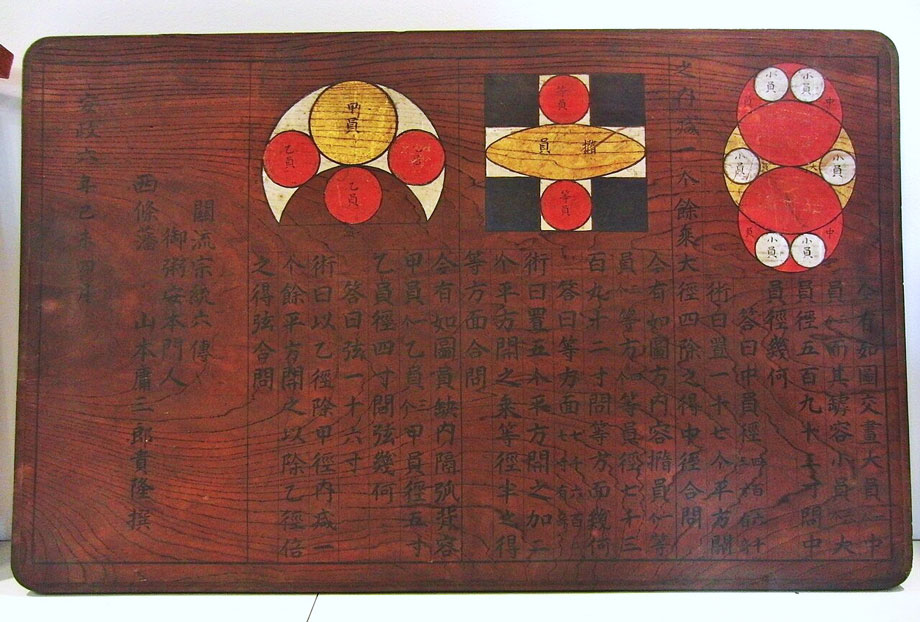 小員
小員
中
小員
小員
中
小員
小員
今有如圖交畫大員二中
員二而其罅容小員六大
員徑五百九十三寸問中
員徑幾何
答曰中員徑四百
術曰置一十七个平方開
之内減一个餘乘大徑四除之得中徑合問
等員
楕員
等員
今有如圖方内容楕員一等
員二等方四等員徑七十三
百九十二寸問等方面幾何
答曰等方面七
術曰置五个平方開之加三
个平方開之乘等徑半之得
等方面合問
甲員
乙員
乙員
乙員
今有如圖員缺内隔弧背容
甲員一乙員三甲員徑五寸
乙員徑四寸問弦幾何
答曰弦一十六寸
術曰以乙徑除甲徑内減一
个餘平方開之以除乙徑倍
之得弦合問
關流宗統六傳
御術安本門人
西條藩 山本庸三郎貴隆撰
安政六年己未 月